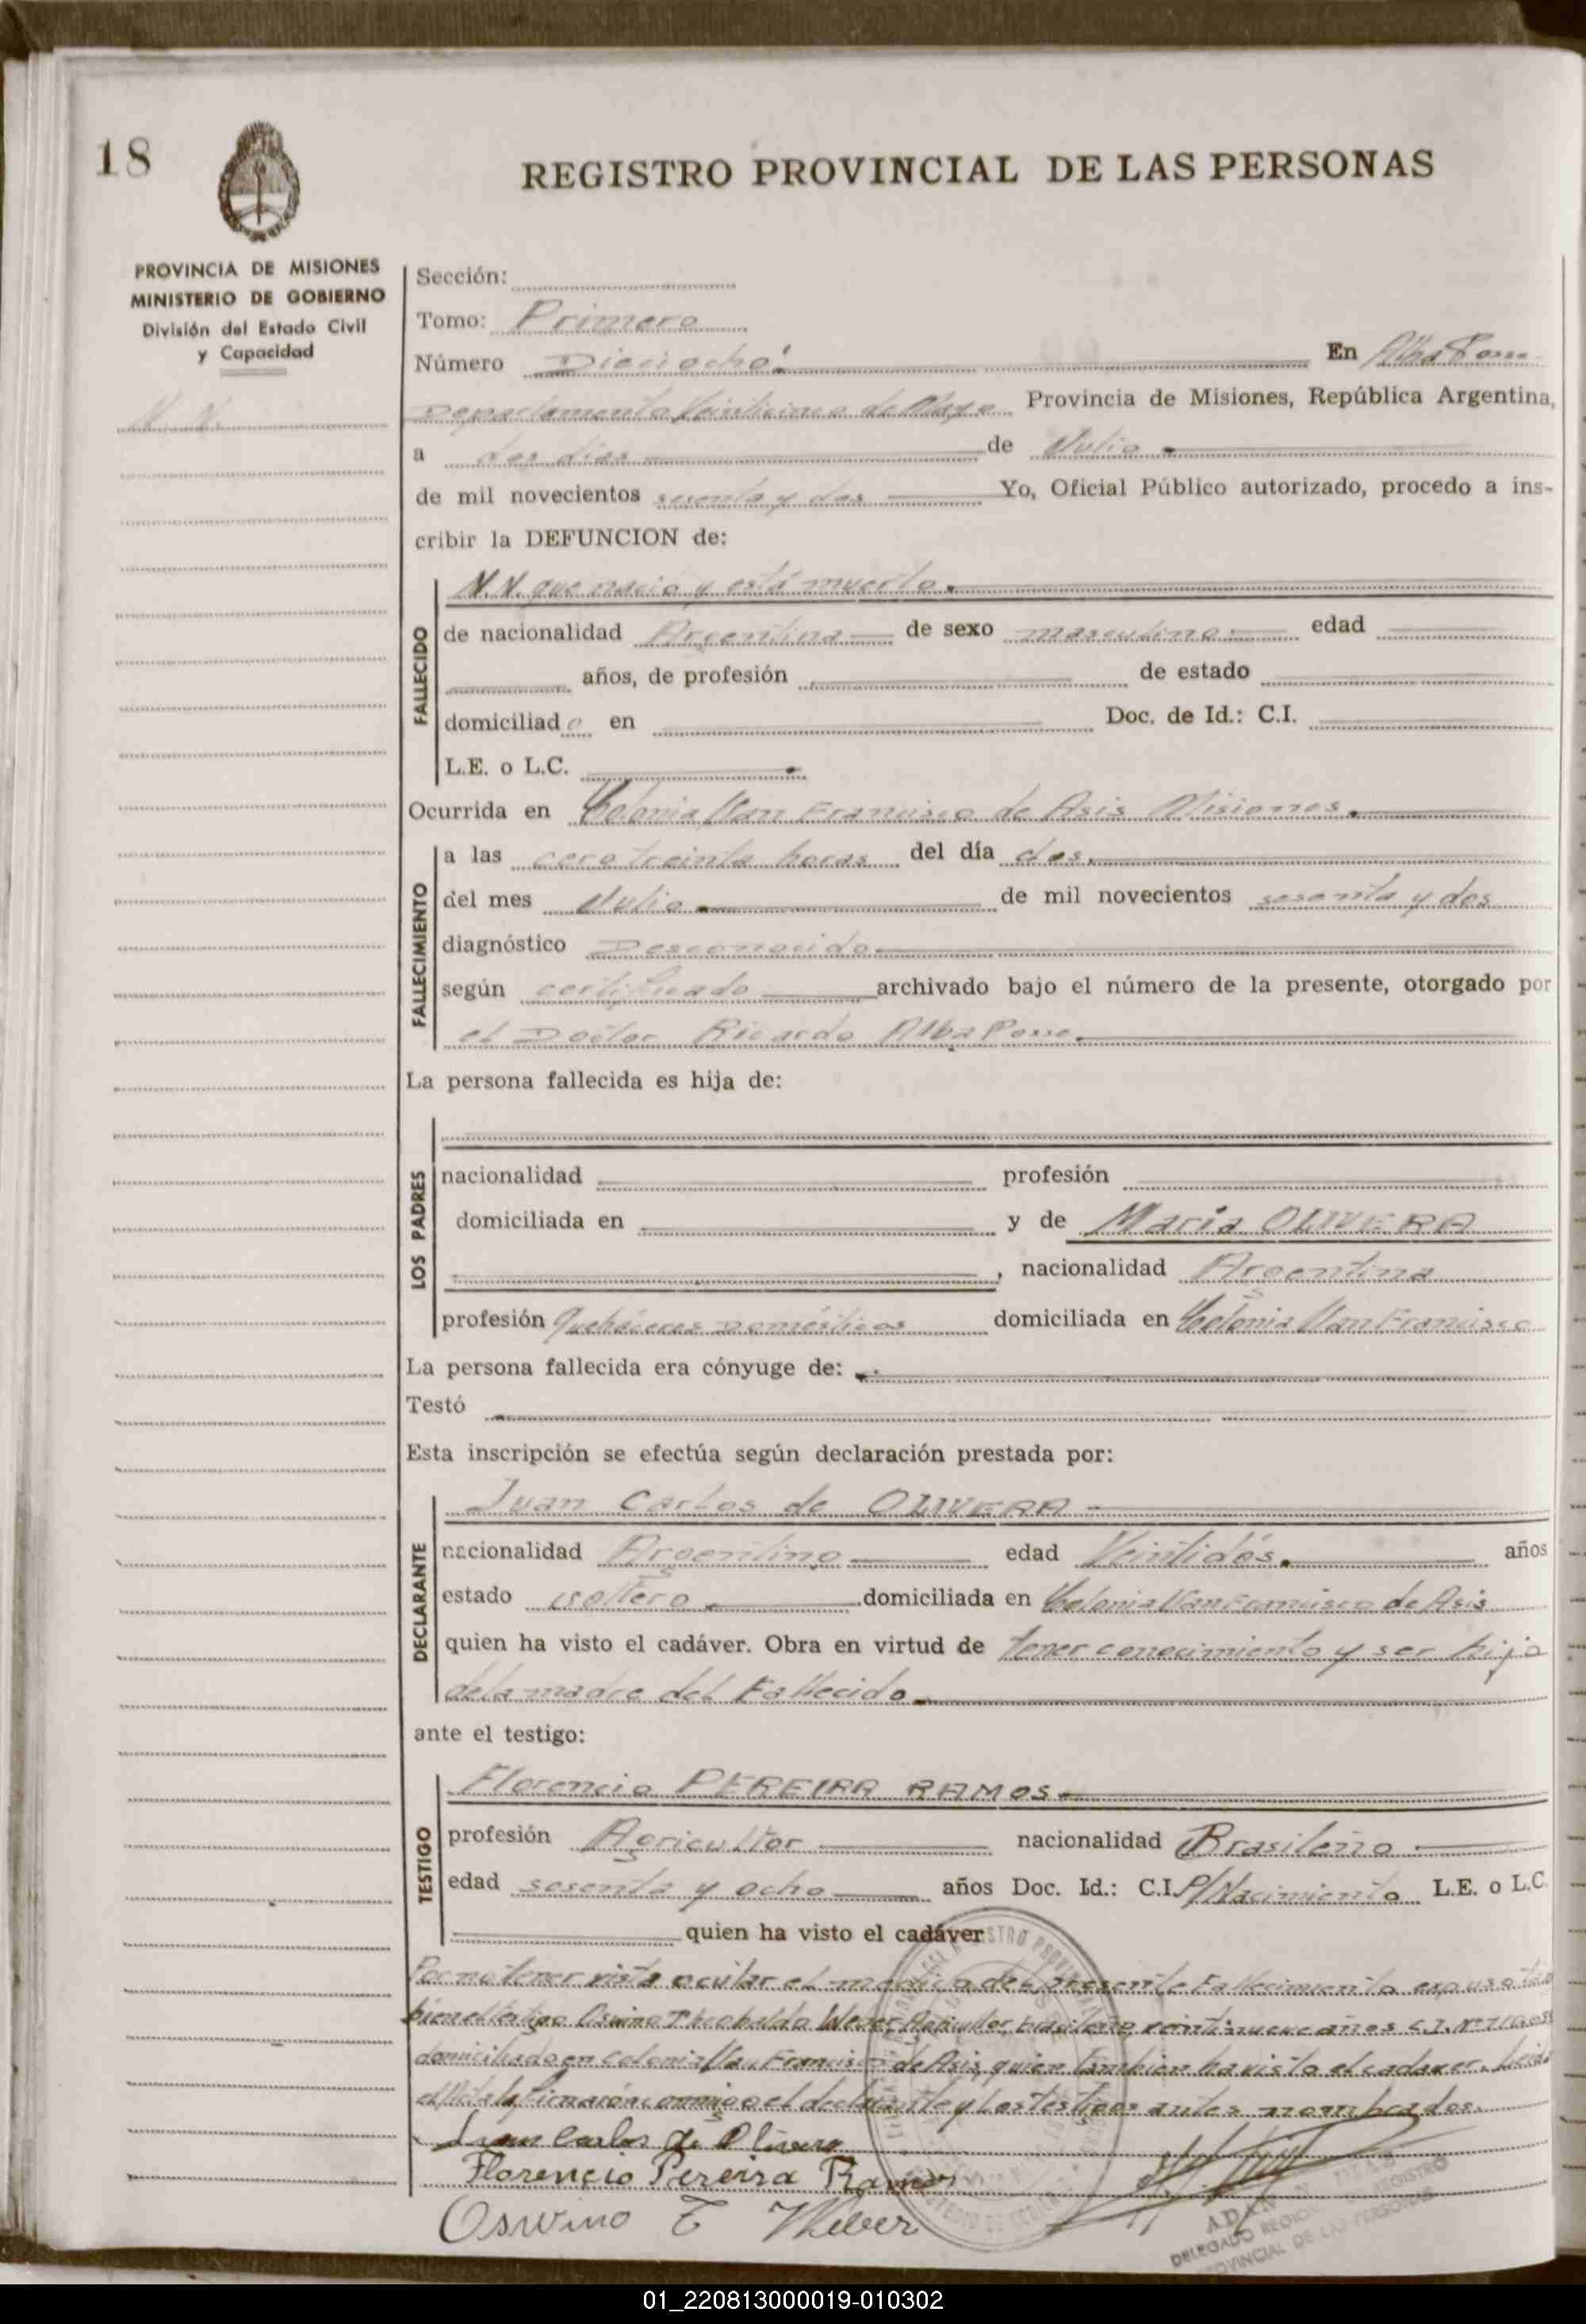 18
REGISTRO PROVINCIAL DE LAS PERSONAS
PROVINCIA DE MISIONES
MINISTERIO DE GOBIERNO
División del Estado Civil
y Capacidad
N. N.
Sección:
Tomo: Primero
Número Dieciocho. En Alba Posse
Departamento Veinticinco de Mayo Provincia de Misiones, República Argentina,
a dos días de Julio
de mil novecientos sesenta y dos Yo, Oficial Público autorizado, procedo a ins-
cribir la DEFUNCION de:
FALLECIDO
N.N. que nació y está muerto.
de nacionalidad Argentina de sexo masculino edad
años, de profesión de estado
domiciliado en Doc. de Id.: C.I.
L.E. o L.C.
Ocurrida en Colonia San Francisco de Asis Misiones.
FALLECIMIENTO
a las cero treinta horas del día dos.
del mes Julio de mil novecientos sesenta y dos
diagnóstico Desconocido
según certificado archivado bajo el número de la presente, otorgado por
el Doctor Ricardo Alba Posse.
La persona fallecida es hija de:
LOS PADRES
nacionalidad profesión
domiciliada en y de María OLIVERA
, nacionalidad Argentina
profesión Quehaceres Domésticos domiciliada en Colonia San Francisco
La persona fallecida era cónyuge de:
Testó
Esta inscripción se efectúa según declaración prestada por:
DECLARANTE
Juan Carlos de OLIVERA
nacionalidad Argentino edad Veintidós. años
estado soltero domiciliada en Colonia San Francisco de Asis
quien ha visto el cadáver. Obra en virtud de tener conocimiento y ser hijo
de la madre del Fallecido
ante el testigo:
TESTIGO
Florencio PEREIRA RAMOS
profesión Agricultor nacionalidad Brasileño
edad sesenta y ocho años Doc. Id.: C.I. P/Nacimiento L.E. o L.C.
quien ha visto el cadáver
Por no tener vista ocular el médico del presente Fallecimiento expuso tam
bien el testigo Oswino Theobaldo Weber, Agricultor, brasileño, veintinueve años C.I. Nº
domiciliado en Colonia San Francisco de Asis, quien también ha visto el cadaver. Leida
el Acta la firmaron conmigo el declarante y los testigos antes nombrados.
Juan Carlos de Olivera
Florencio Pereira Ramos
Oswino T Weber
DELEGADO REGIO
PROVINCIAL DE LAS PERSONAS
01_220813000019-010302